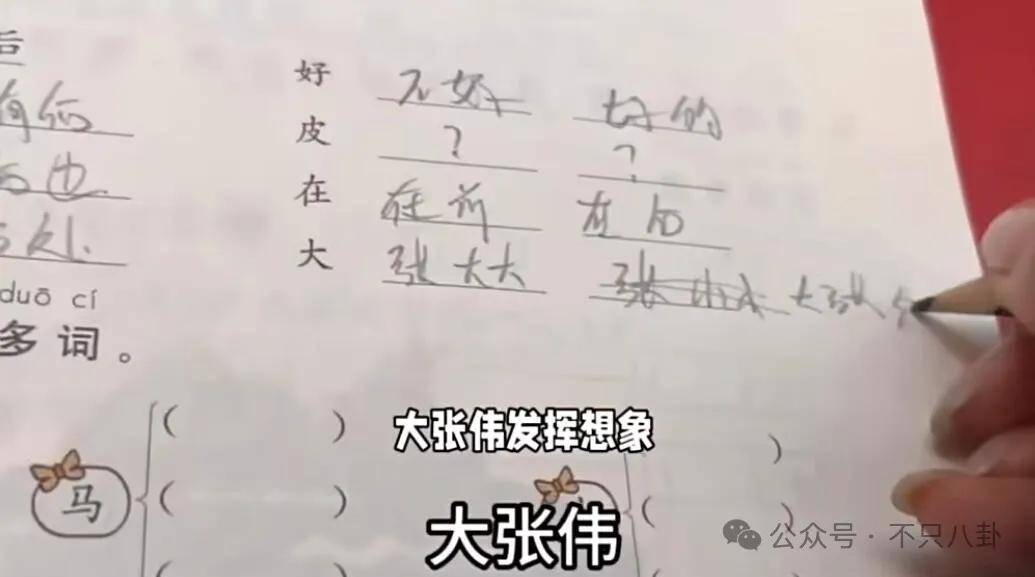 后
好 不好 好的
有何
皮 ? ?
在 在前 在后
大 张大大 大张
duō cí
多词。
大张伟发挥想象
( ) )
马 ( ) ( )
大张伟
公众号·不只八卦